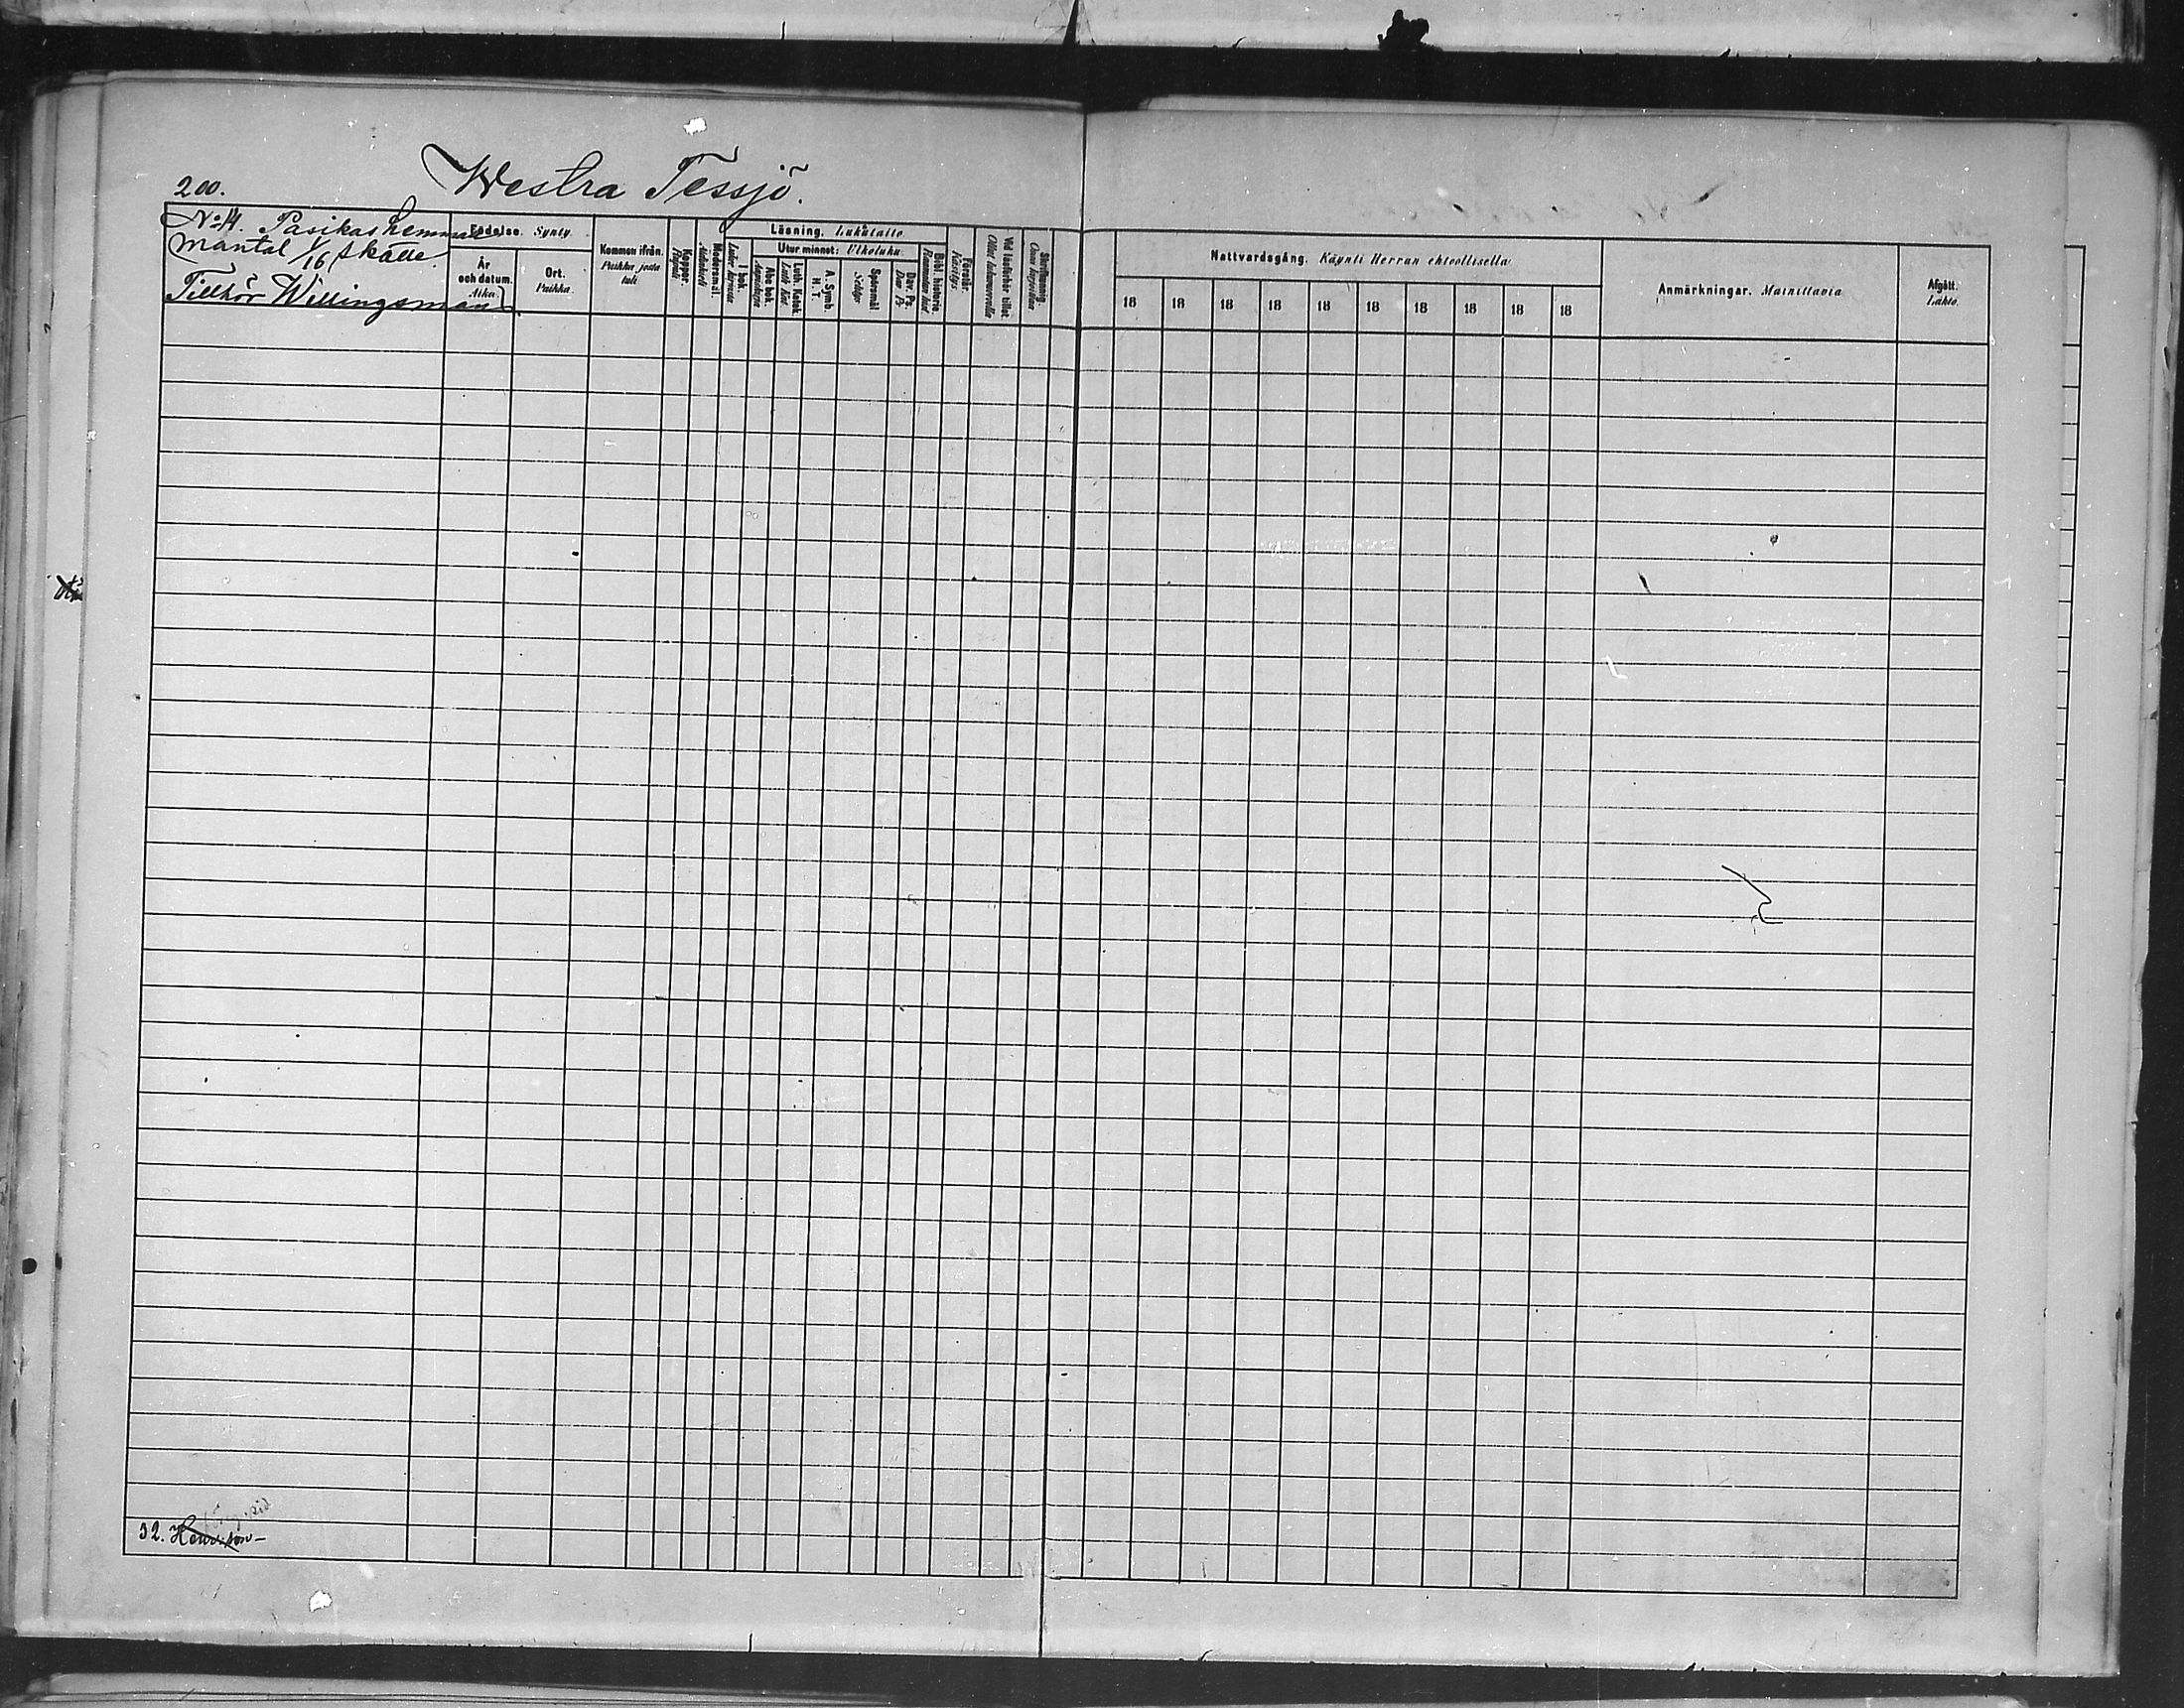 200.
Westra Tessjö.
No 4. Pasikas hemman
mantal 1/16 skatte.
Tillhör Willingsman
Födelse. Synty.
År och datum. Aika.
Ort. Paikka.
Kommen ifrån. Paikka josta tuli
Koppor. Rupuli
Modersmål. Äidinkieli
Läsning. Lukutaito
I bok. Lukee kirjasta
Utur minnet: Ulkoluku.
Abc bok. Aapiskirja
Luth. Katek. Luth. Kat.
A. Symb. H. T.
Spörsmål Selitys
Dav. Ps. Dav. Ps.
Bibl. historia. Raamatun hist.
Förstår. Käsitys.
Vid läsförhör tillst. Ollut lukukunnalla
Skriftkunnig. Osaa kirjoittaa
Nattvardsgång. Käynti Herran ehtoollisella
18 18 18 18 18 18 18 18 18 18
Anmärkningar. Muistutuksia
Afgått. Lähtö.
32. Henriksson